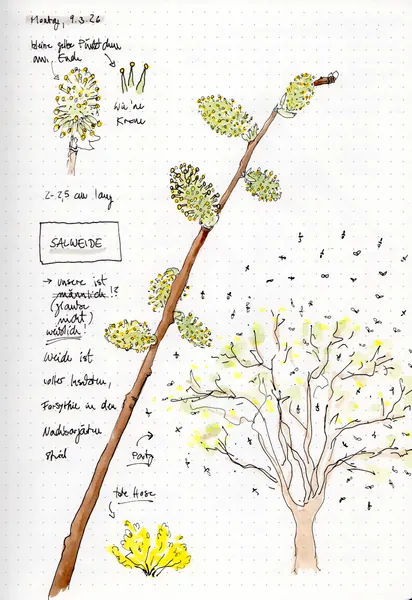 Montag, 9.3.26
kleine gelbe Pünktchen
am Ende
wie 'ne
Krone
2-2,5 cm lang
SALWEIDE
→ unsere ist
männlich!?
(glaube
nicht)
weiblich!
Weide ist
voller Insekten,
Forsythie in den
Nachbargärten
Party
tote Hose